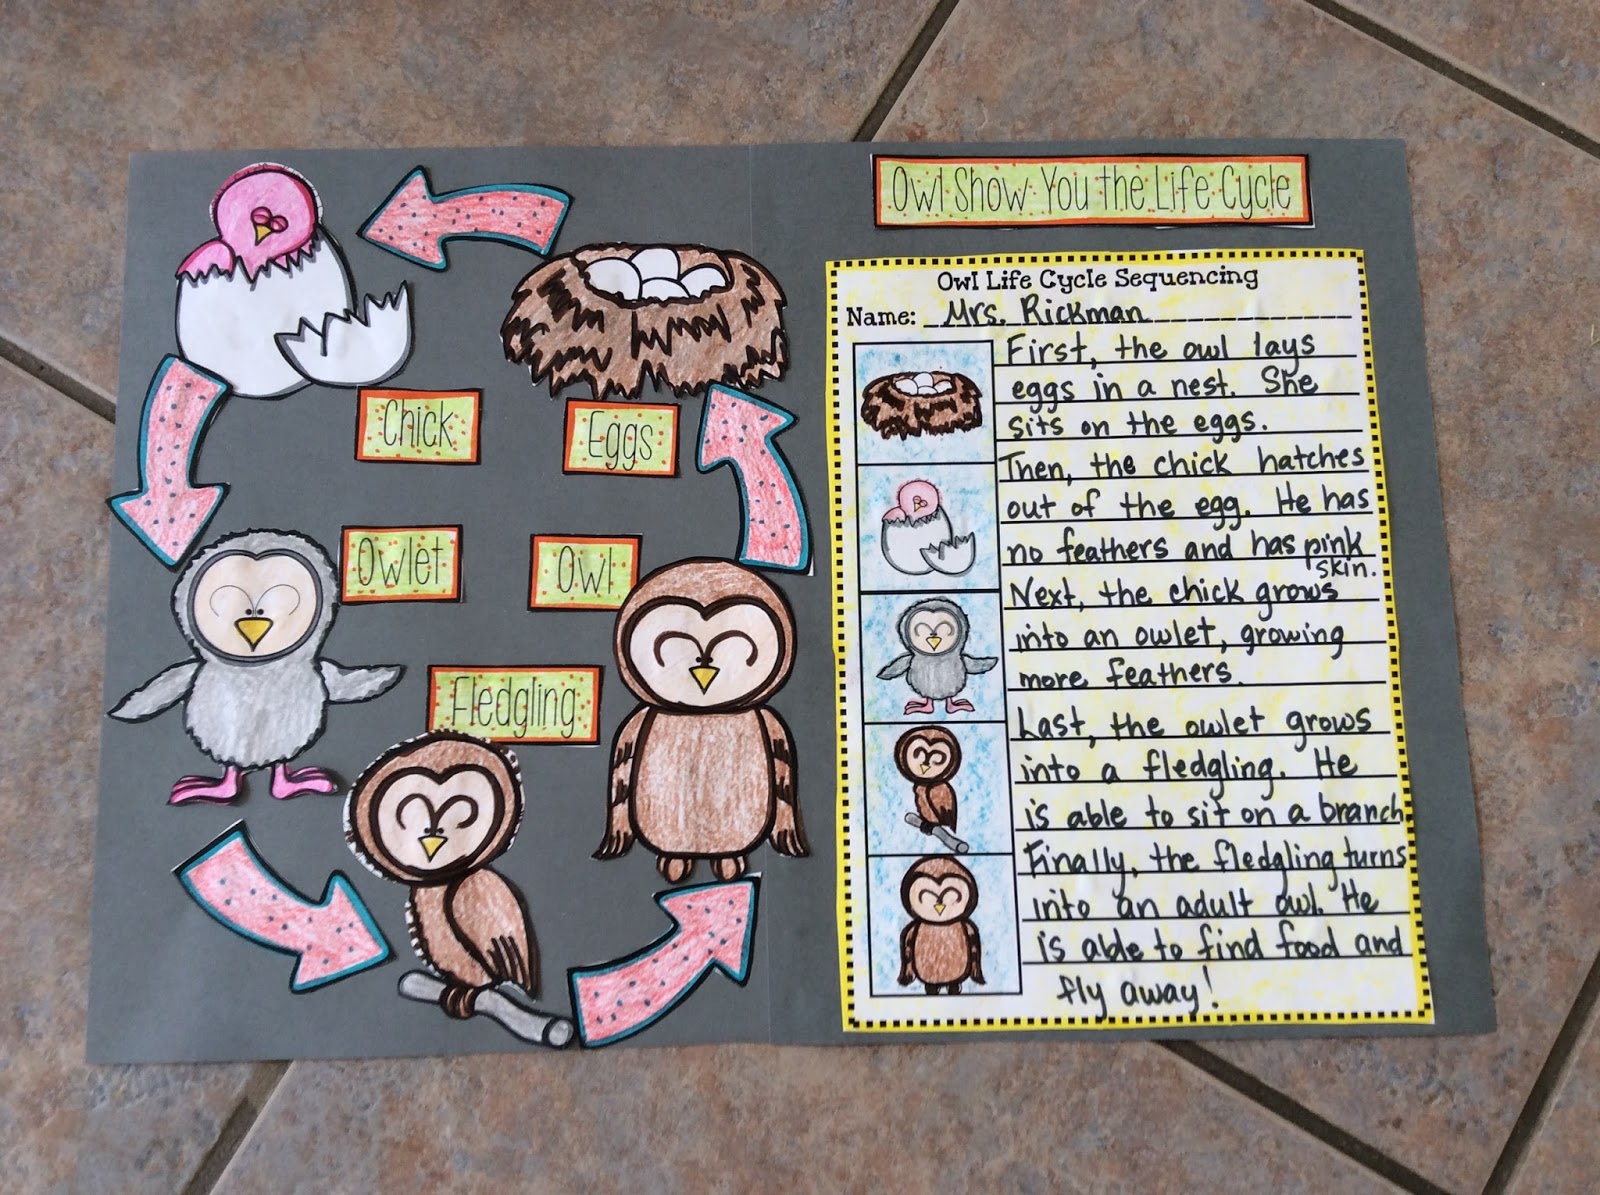 Owl Show You the Life Cycle
Chick
Eggs
Owlet
Owl
Fledgling
Owl Life Cycle Sequencing
Name: Mrs. Rickman
First, the owl lays
eggs in a nest. She
sits on the eggs.
Then, the chick hatches
out of the egg. He has
no feathers and has pink
skin.
Next, the chick grows
into an owlet, growing
more feathers.
Last, the owlet grows
into a fledgling. He
is able to sit on a branch
Finally, the fledgling turns
into an adult owl. He
is able to find food and
fly away!